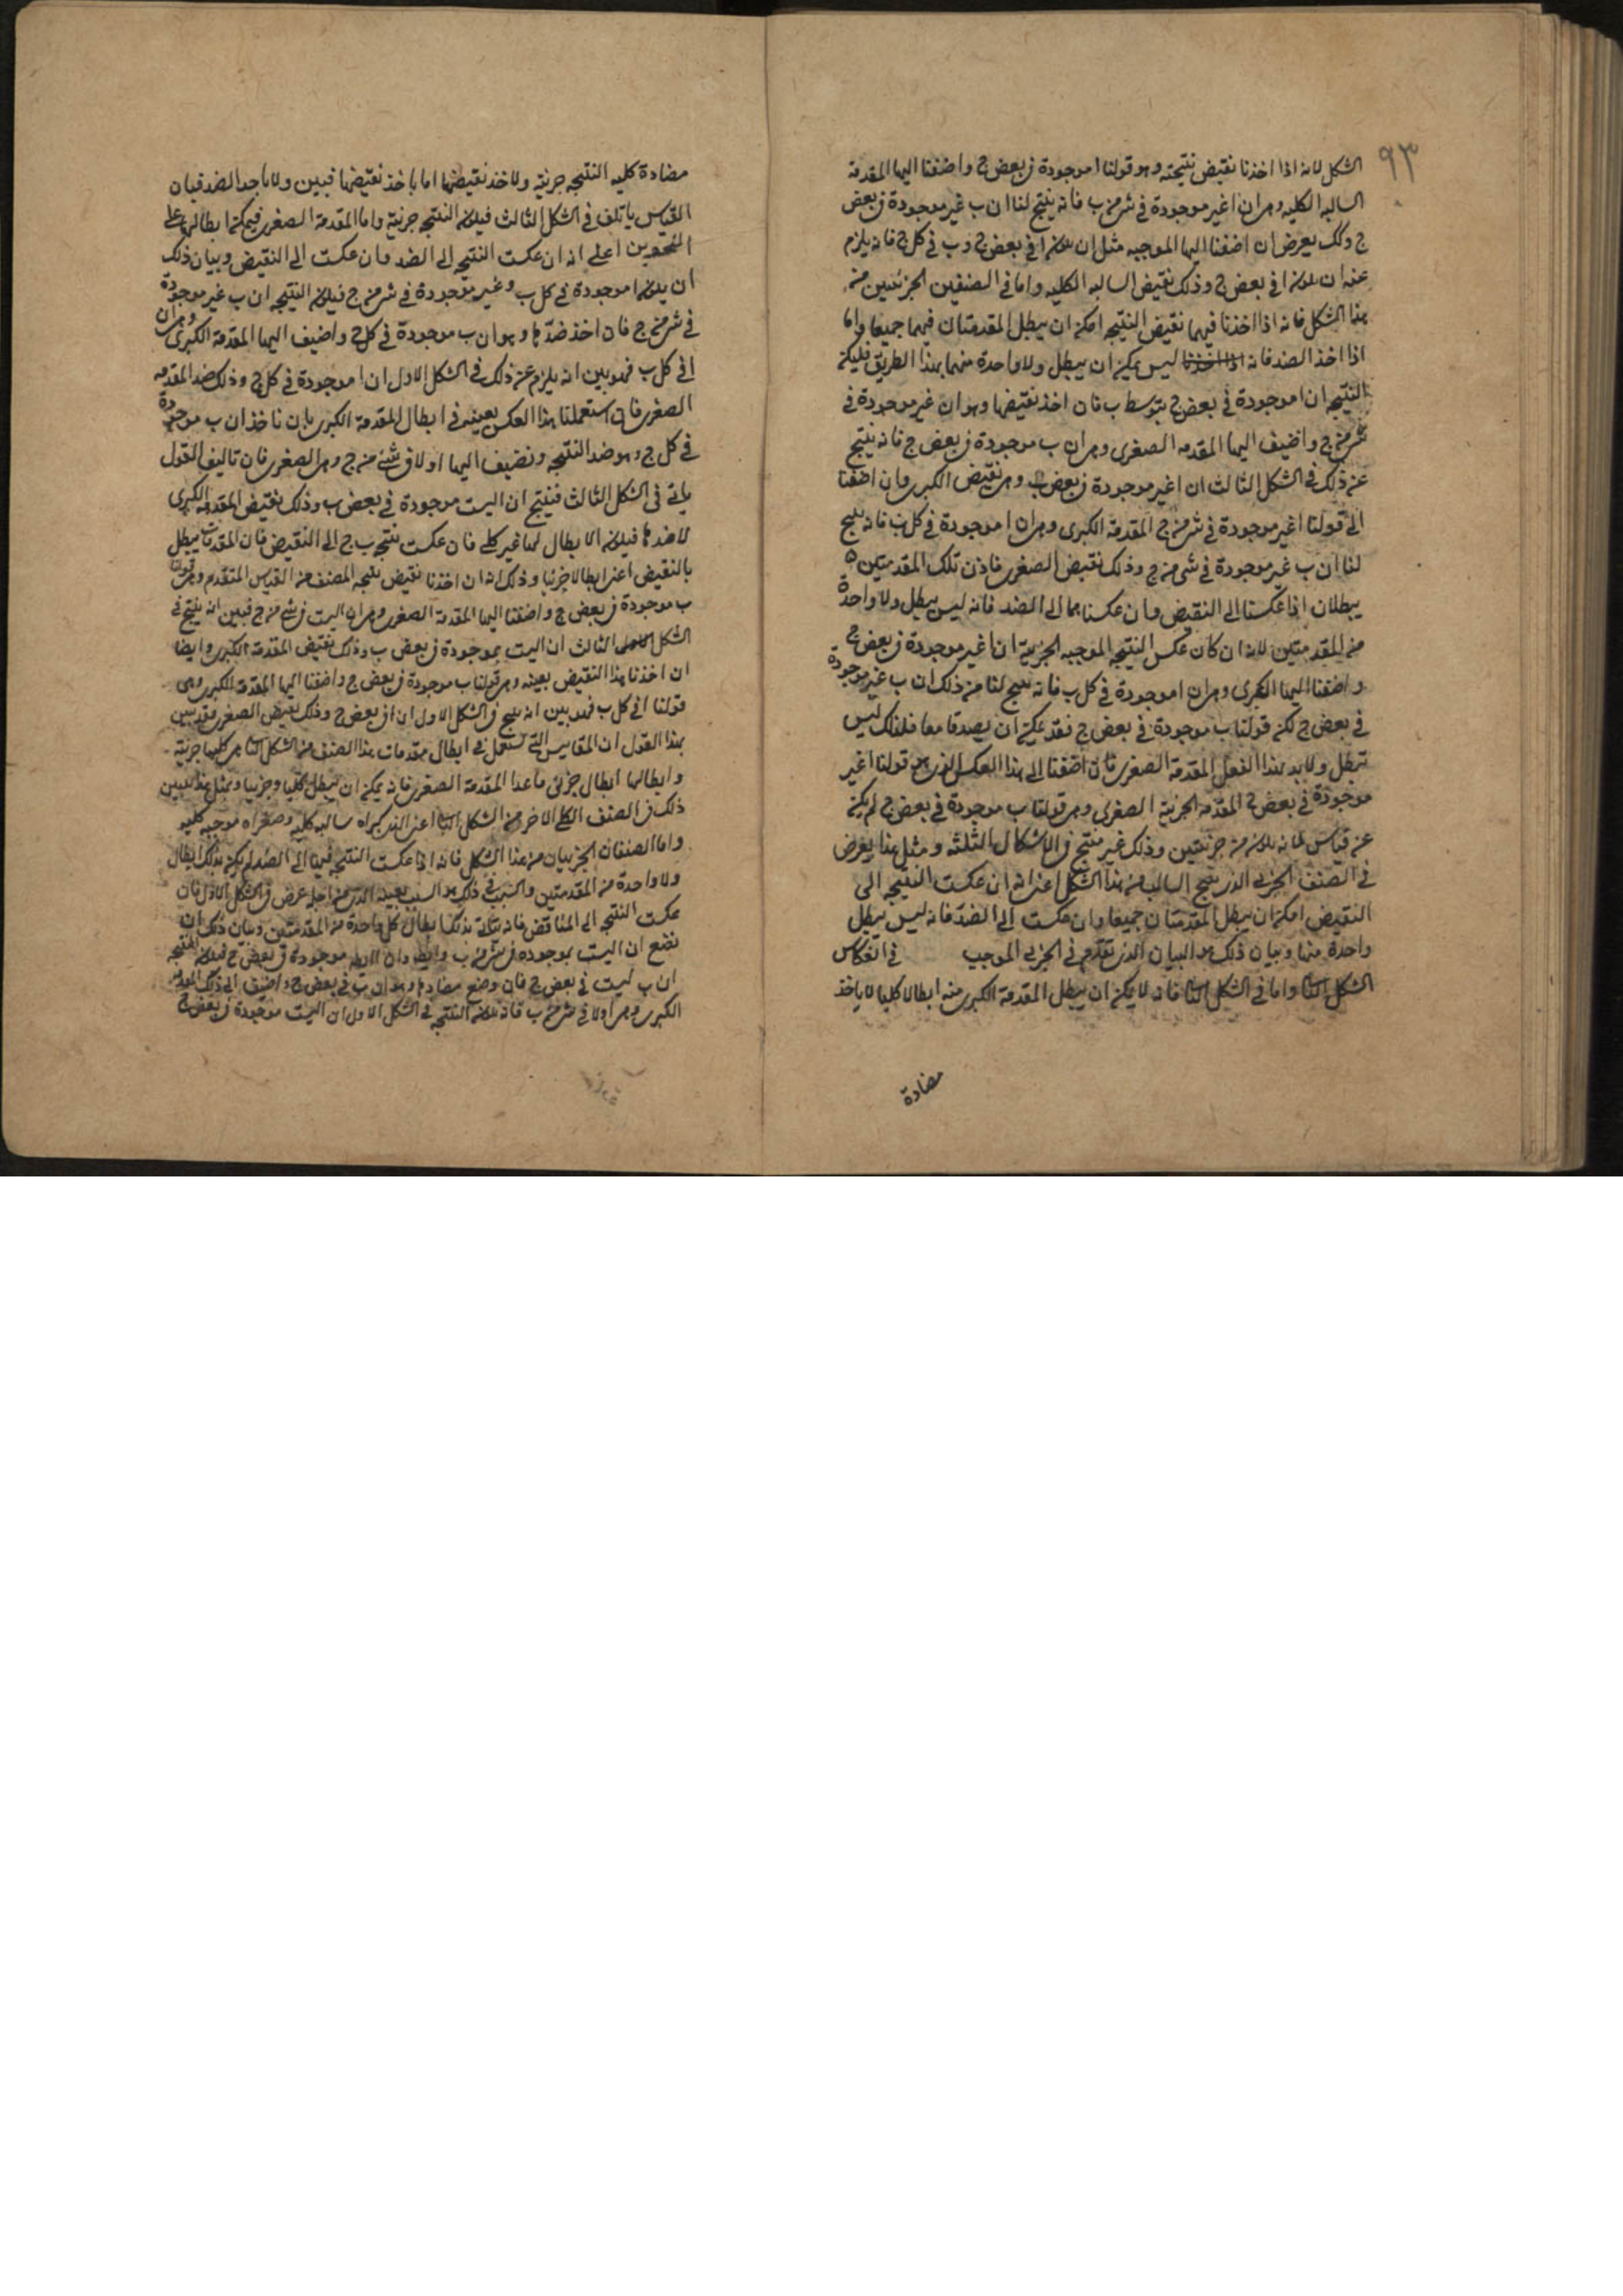 ٩٣
الشكل لانه اذا اخذنا نقيض نتيجته وهو قولنا ا موجودة فى بعض ج واضفنا اليها المقدمة
السالبه الكليه وهى ان ا غير موجودة فى شى من ب فانه ينتج لنا ان ب غير موجودة فى بعض
ج وكك يعرض ان اضفنا اليها الموجبه مثل ان يكون ا فى بعض ج و ب فى كل ج فانه يلزم
عنه ان يكون ا فى بعض ج وذلك نقيض السالبه الكليه واما فى الصنفين الجزئيين من
هذا الشكل فانه اذا اخذنا فيهما نقيض النتيجه امكن ان يبطل المقدمتان فيهما جميعا واما
اذا اخذ الضد فانه ليس يمكن ان يبطل ولا واحدة منهما بهذا الطريق فليكن
النتيجه ان ا موجودة فى بعض ج بتوسط ب فان اخذ نقيضها وهو ان غير موجودة فى
شى من ج واضيف اليها المقدمه الصغرى وهى ان ب موجودة فى بعض ج فانه ينتج
عن ذلك فى الشكل الثالث ان ا غير موجودة فى بعض ب وهى نقيض الكبرى وان اضفنا
الى قولنا ا غير موجودة فى شى من ج المقدمة الكبرى وهى ان ا موجودة فى كل ب فانه ينتج
لنا ان ب غير موجودة فى شى من ج وذلك نقيض الصغرى فاذن تلك المقدمتين
يبطلان اذا عكسنا الى النقيض وان عكسناهما الى الضد فانه ليس يبطل ولا واحدة
من المقدمتين لانه ان كان عكس النتيجه الموجبه الجزئية ان ا غير موجودة فى بعض ج
واضفنا اليها الكبرى وهى ان ا موجودة فى كل ب فانه ينتج لنا من ذلك ان ب غير موجودة
فى بعض ج لكن قولنا ب موجودة فى بعض ج فقد يمكن ان يصدقا معا فلذلك ليس
تبطل ولا بد بهذا الفعل المقدمة الصغرى فان اضفنا الى هذا العكس الذى هو قولنا ا غير
موجودة فى بعض ج المقدمه الجزئية الصغرى وهى قولنا ب موجودة فى بعض ج لم يكن
عنه قياس لانه يكون من جزئيتين وذلك غير منتج فى الاشكال الثلثه ومثل هذا يعرض
فى الصنف الجزئى الذى ينتج السالب من هذا الشكل اعنى انه ان عكست النتيجه الى
النقيض امكن ان يبطل المقدمتان جميعا وان عكست الى الضد فانه ليس يبطل
واحدة منها وبيان ذلك هو البيان الذى تقدم فى الجزئى الموجب فى انعكاس
الشكل الثانى واما فى الشكل الثانى فانه لا يمكن ان يبطل المقدمة الكبرى منه ابطالا كليا لا باخذ
مضادة
مضادة كليه النتيجه جزئية ولا اخذ نقيضها اما باخذ نقيضها فبين ولا باخذ الضد فبان
القياس ياتلف فى الشكل الثالث فيكون النتيجه جزئية واما المقدمة الصغرى فيمكن ابطالها على
النحوين اعلى انه ان عكست النتيجه الى الضد وان عكست الى النقيض وبيان ذلك
ان يكون ا موجودة فى كل ب وغير موجودة فى شى من ج فيكون النتيجه ان ب غير موجودة
فى شى من ج فان اخذ ضدها وهو ان ب موجودة فى كل ج واضيف اليها المقدمة الكبرى وهى ان
ا فى كل ب فهو بين انه يلزم عن ذلك فى الشكل الاول ان ا موجودة فى كل ج وذلك ضد المقدمه
الصغرى فان استعملنا هذا العكس بعينه فى ابطال المقدمة الكبرى بان ناخذ ان ب موجودة
فى كل ج وهو ضد النتيجه ونضيف اليها ا ولا فى شئ من ج وهى الصغرى فان تاليف القول
ياتى فى الشكل الثالث فينتج ان ا ليست موجودة فى بعض ب وذلك نقيض المقدمه الكبرى
لا ضدها فيكون الابطال لها غير كلى فان عكست نتيجه ب ج الى النقيض فان المقدمتان تبطل
بالنقيض اعنى ابطالا جزئيا وذلك انه ان اخذنا نقيض نتيجه الصنف من القياس المتقدم وهى قولنا
ب موجودة فى بعض ج واضفنا اليها المقدمة الصغرى وهى ان ا ليست فى شى من ج فبين انه ينتج فى
الشكل الثالث ان ا ليست بموجودة فى بعض ب وذلك نقيض المقدمة الكبرى وايضا
ان اخذنا هذا النقيض بعينه وهى قولنا ب موجودة فى بعض ج واضفنا اليها المقدمة الكبرى وهى
قولنا ا فى كل ب فهو بين انه ينتج فى الشكل الاول ان ا فى بعض ج وذلك نقيض الصغرى فقد تبين
بهذا القول ان المقاييس التى تستعمل فى ابطال مقدمات هذا الصنف من الشكل الثانى هى كلها جزئية
وابطالها ابطال جزئى ما عدا المقدمة الصغرى فانه يمكن ان يبطل كليا وجزئيا وبمثل هذا تبين
ذلك فى الصنف الكلى الاخر من الشكل الثانى اعنى الذى كبراه سالبه كليه وصغراه موجبه كليه
واما الصنفان الجزئيان من هذا الشكل فانه اذا عكست النتيجه فيهما الى الضد لم يكن بذلك ابطال
ولا واحدة من المقدمتين والسبب فى ذلك هو السبب بعينه الذى من اجله عرض فى الشكل الاول فان
عكست النتيجه الى المناقض فانه يتاتى بذلك ابطال كل واحدة من المقدمتين وبيان ذلك ان
نضع ان ا ليست بموجودة فى شى من ب موجودة فى بعض ج فيكون النتيجه
ان ب ليست فى بعض ج فان وضع مضادها وهو ان ب فى بعض ج واضيف الى ذلك المقدمة
الكبرى وهى ا ولا فى شى من ب فانه يكون النتيجه فى الشكل الاول ان ا ليست موجودة فى بعض ج